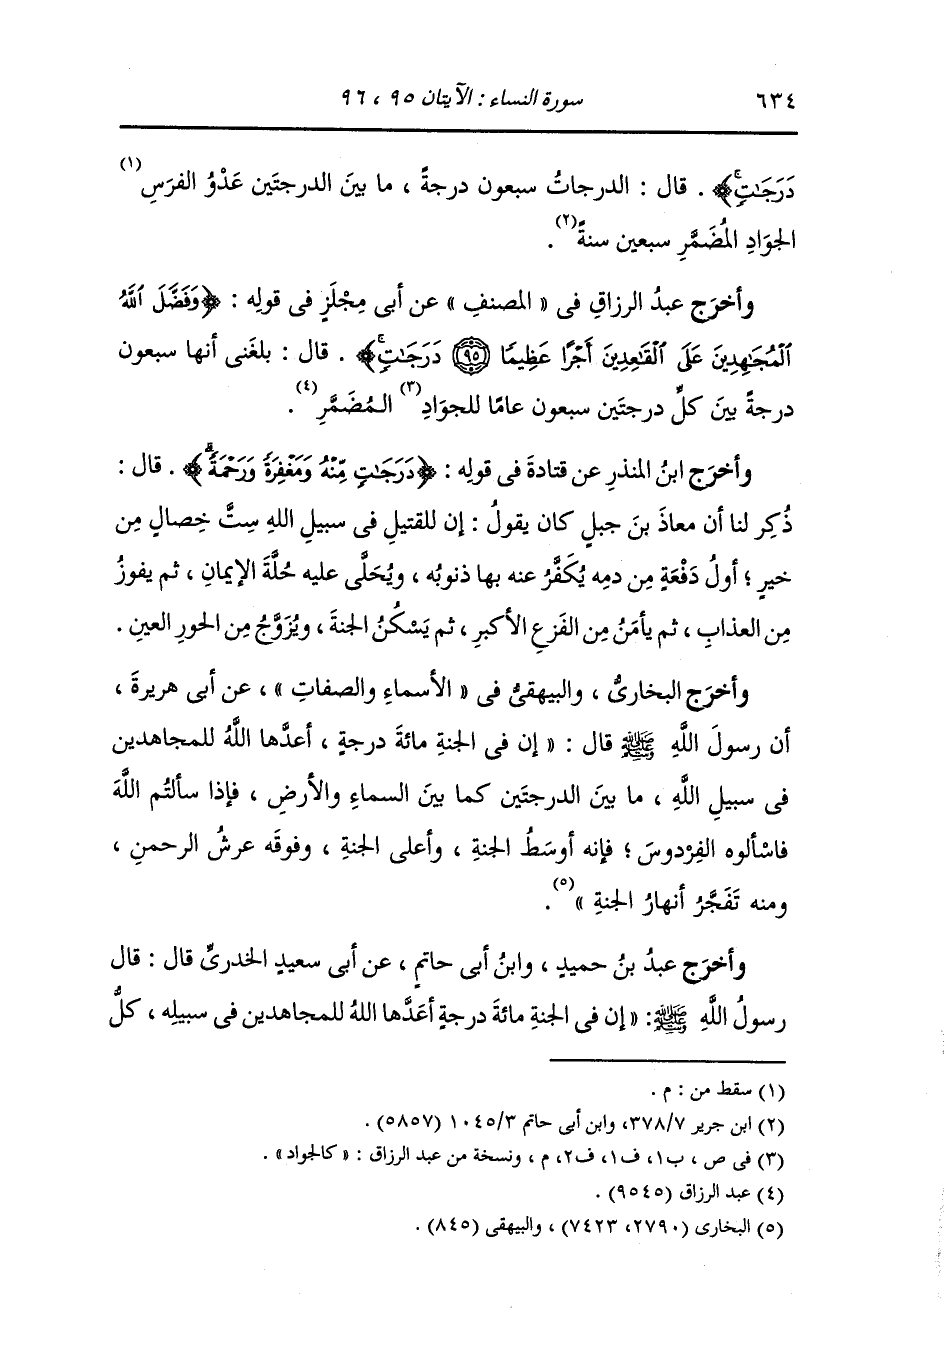 ٦٣٤ سورة النساء : الآيتان ٩٥ ، ٩٦
دَرَجَٰتٍ﴾ . قال : الدرجاتُ سبعون درجةً ، ما بينَ الدرجتَين عَدْوُ الفرَسِ(١)
الجوَادِ المُضَمَّرِ سبعين سنةً(٢) .
وأخرَج عبدُ الرزاقِ فى « المصنفِ » عن أبى مِجْلَزٍ فى قولِه : ﴿وَفَضَّلَ ٱللَّهُ
ٱلْمُجَٰهِدِينَ عَلَى ٱلْقَٰعِدِينَ أَجْرًا عَظِيمًا ۝٩٥ دَرَجَٰتٍ﴾ . قال : بلغَنى أنها سبعون
درجةً بينَ كلِّ درجتَين سبعون عامًا للجوَادِ(٣) المُضَمَّرِ(٤) .
وأخرَج ابنُ المنذرِ عن قتادةَ فى قولِه : ﴿دَرَجَٰتٍ مِّنْهُ وَمَغْفِرَةً وَرَحْمَةً﴾ . قال :
ذُكِر لنا أن معاذَ بنَ جبلٍ كان يقولُ : إن للقتيلِ فى سبيلِ اللهِ سِتَّ خِصالٍ مِن
خيرٍ ؛ أولُ دَفْعَةٍ مِن دمِه يُكَفَّرُ عنه بها ذنوبُه ، ويُحَلَّى عليه حُلَّةَ الإيمانِ ، ثم يفوزُ
مِن العذابِ ، ثم يأمَنُ مِن الفَزعِ الأكبرِ ، ثم يَسْكُنُ الجنةَ ، ويُزَوَّجُ مِن الحورِ العينِ .
وأخرَج البخارىُّ ، والبيهقىُّ فى « الأسماءِ والصفاتِ » ، عن أبى هريرةَ ،
أن رسولَ اللَّهِ ﷺ قال : « إن فى الجنةِ مائةَ درجةٍ ، أعدَّها اللَّهُ للمجاهدين
فى سبيلِ اللَّهِ ، ما بينَ الدرجتَين كما بينَ السماءِ والأرضِ ، فإذا سألتُم اللَّهَ
فاسْألوه الفِرْدوسَ ؛ فإنه أوسَطُ الجنةِ ، وأعلى الجنةِ ، وفوقَه عرشُ الرحمنِ ،
ومنه تَفَجَّرُ أنهارُ الجنةِ »(٥) .
وأخرَج عبدُ بنُ حميدٍ ، وابنُ أبى حاتمٍ ، عن أبى سعيدٍ الخدرىِّ قال : قال
رسولُ اللَّهِ ﷺ: « إن فى الجنةِ مائةَ درجةٍ أعَدَّها اللهُ للمجاهدين فى سبيلِه ، كلُّ
(١) سقط من : م .
(٢) ابن جرير ٣٧٨/٧، وابن أبى حاتم ١٠٤٥/٣ (٥٨٥٧) .
(٣) فى ص ، ب١، ف١، ف٢، م ، ونسخة من عبد الرزاق : « كالجواد» .
(٤) عبد الرزاق (٩٥٤٥) .
(٥) البخارى (٢٧٩٠، ٧٤٢٣) ، والبيهقى (٨٤٥) .